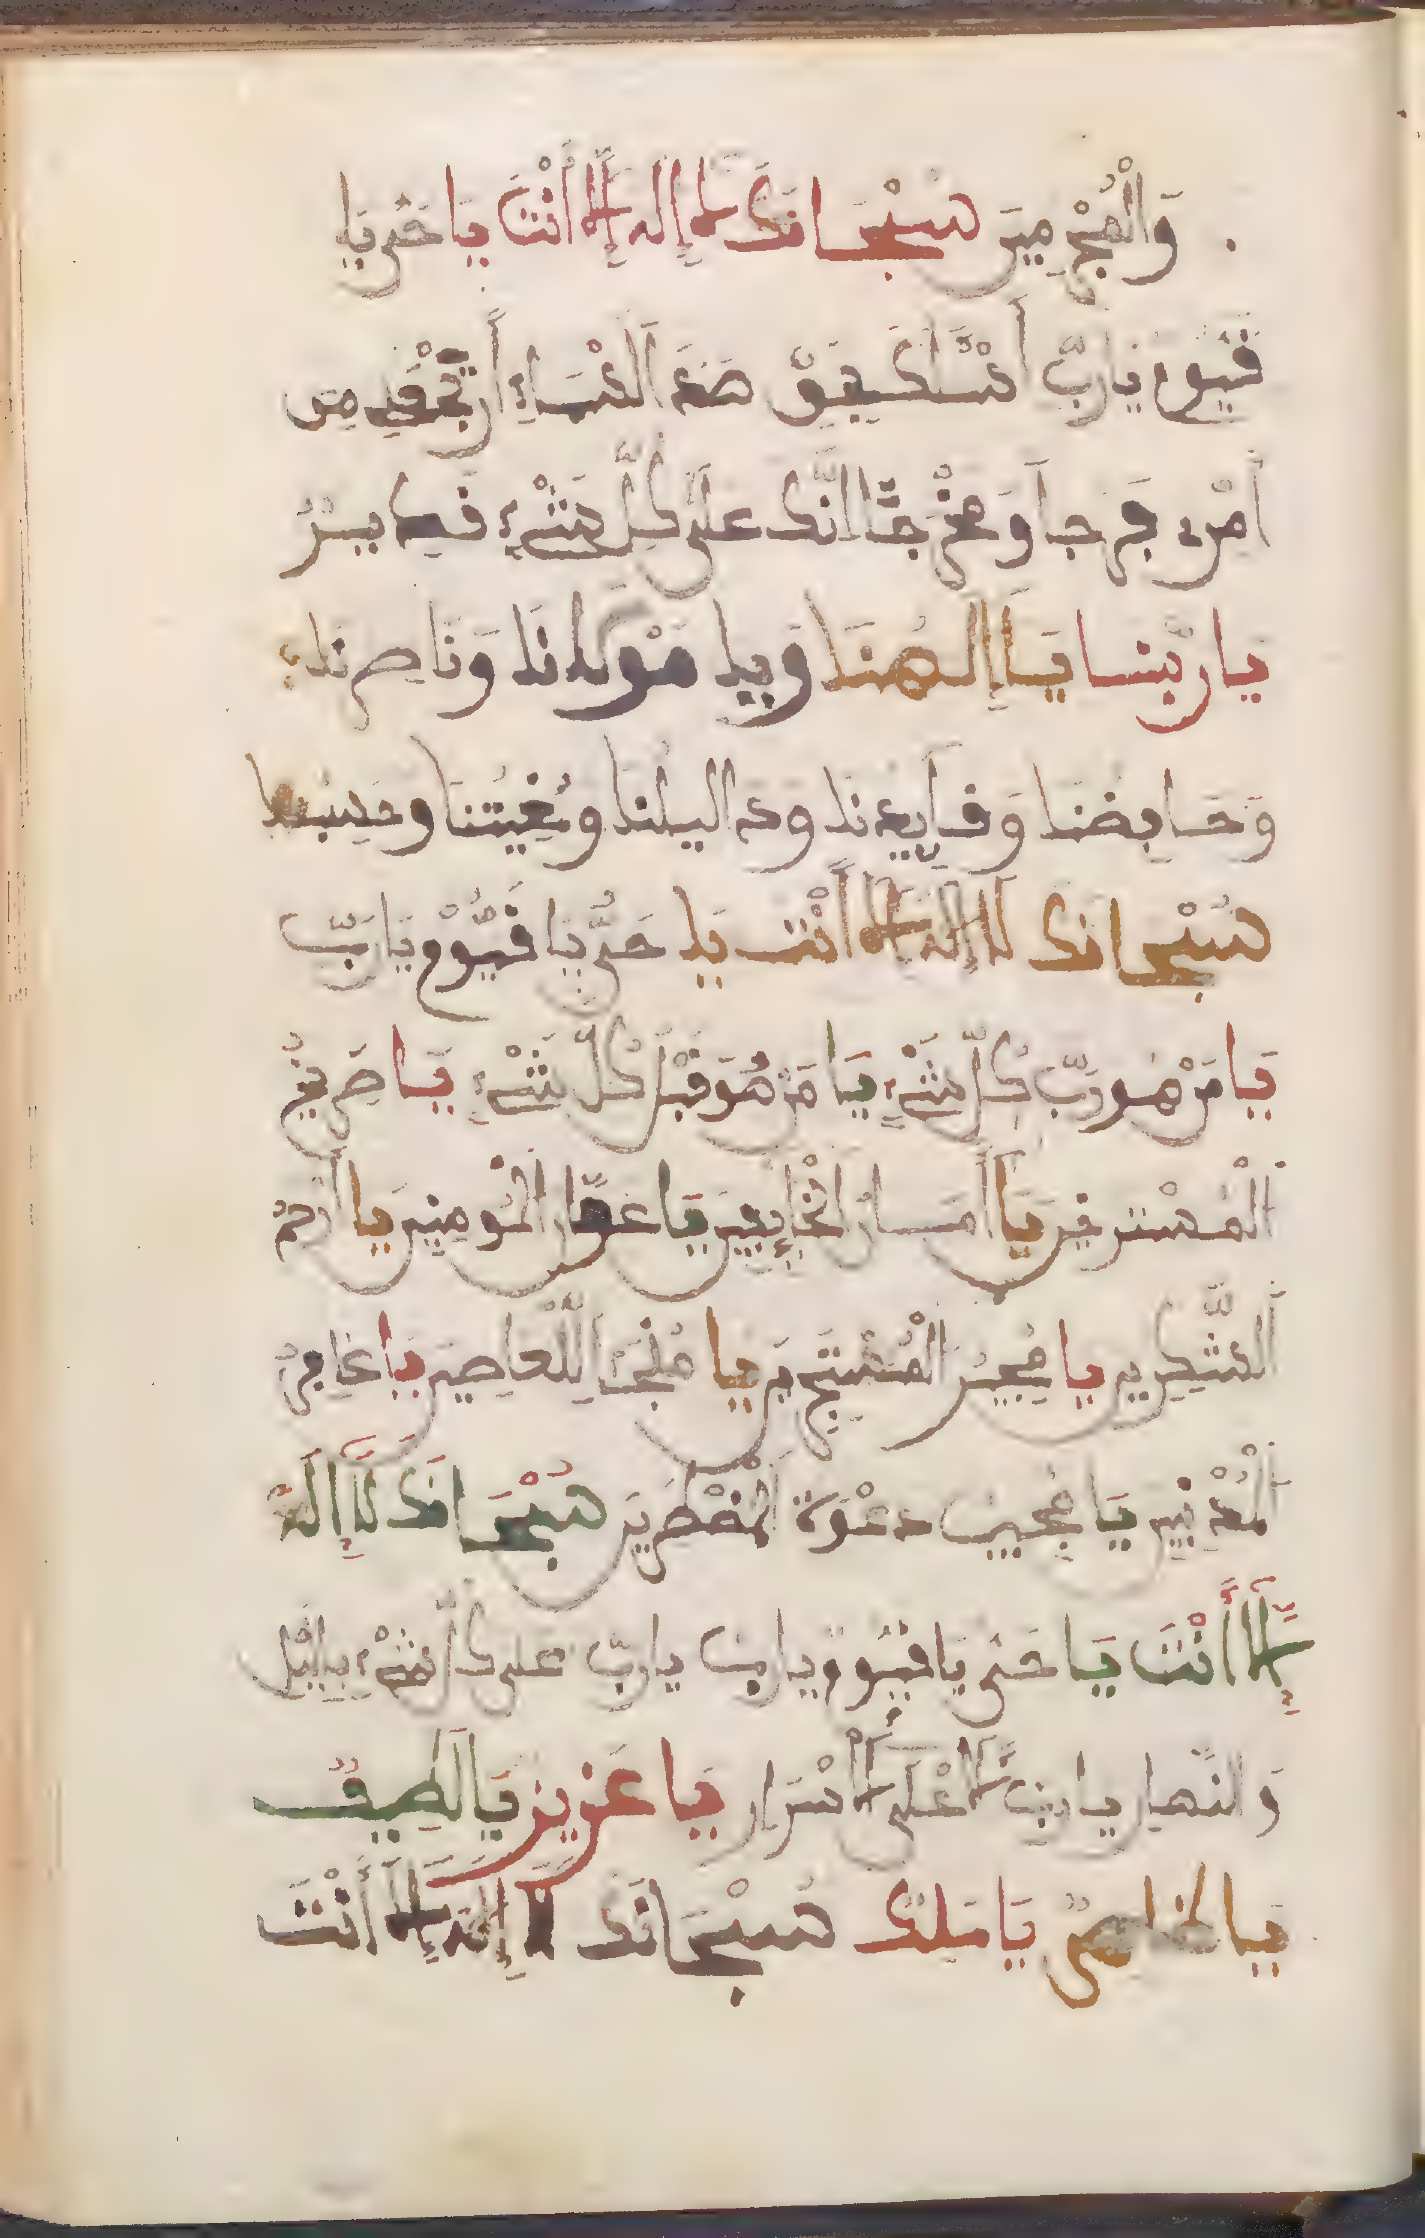 وَالْمُجْرِمِينَ سُبْحَانَكَ لَا إِلَهَ إِلَّا أَنْتَ يَا حَيُّ يَا
قَيُّومُ يَا رَبِّ أَنْ تَجْعَلَ لِي مِنْ
أَمْرِي فَرَجاً وَمَخْرَجاً إِنَّكَ عَلَى كُلِّ شَيْءٍ قَدِيرٌ
يَا رَبَّنَا يَا إِلَهَنَا وَيَا مَوْلَانَا وَنَاصِرَنَا
وَحَافِظَنَا وَقَايِدَنَا وَدَالِيلَنَا وَمُغِيثَنَا وَحَسِيبَنَا
سُبْحَانَكَ لَا إِلَهَ إِلَّا أَنْتَ يَا حَيُّ يَا قَيُّومُ يَا رَبِّ
يَا مَنْ هُوَ رَبُّ كُلِّ شَيْءٍ يَا مَنْ هُوَ قَبْلَ كُلِّ شَيْءٍ يَا صَرِيخَ
الْمُسْتَصْرِخِينَ يَا أَمَانَ الْخَائِفِينَ يَا غَفَّارَ الْمُومِنِينَ يَا أَرْحَمَ
الشَّاكِرِينَ يَا مُجِيرَ الْمُسْتَجِيرِينَ يَا مَلْجَأَ لِلْعَاصِينَ يَا غَافِرَ
الْمُذْنِبِينَ يَا مُجِيبَ دَعْوَةِ الْمُضْطَرِّينَ سُبْحَانَكَ لَا إِلَهَ
إِلَّا أَنْتَ يَا حَيُّ يَا قَيُّومُ يَا رَبِّ يَا رَبِّ عَلَى كُلِّ شَيْءٍ بِالَّيْلِ
وَالنَّهَارِ يَا رَبِّ الْأَعْلَى الْأَسْرَارِ يَا عَزِيزُ يَا لَطِيفُ
يَا مَلِكُ سُبْحَانَكَ لَا إِلَهَ إِلَّا أَنْتَ